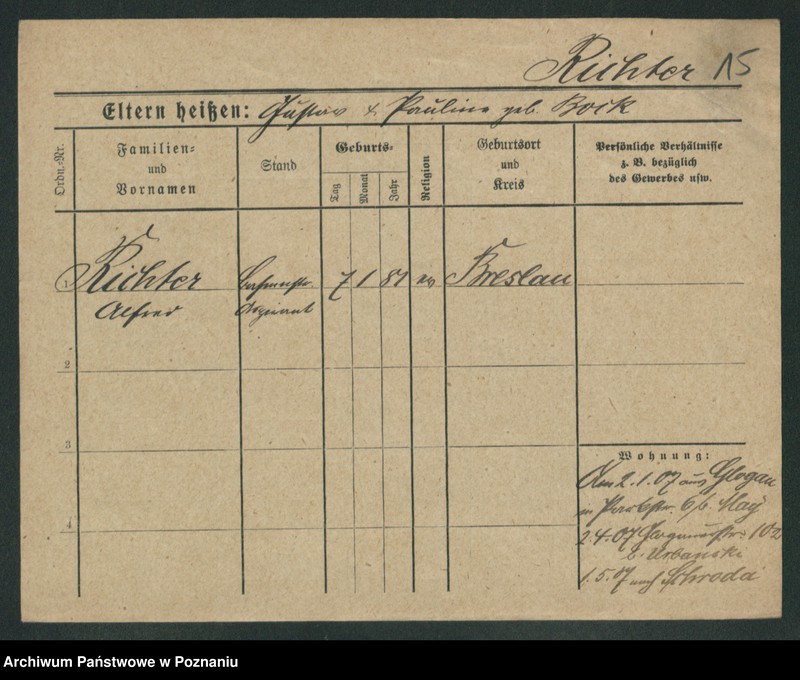 Richter 15
Eltern heißen: Gustav & Pauline geb. Bock
Ordn.-Nr.
Familien-
und
Vornamen
Stand
Geburts-
Tag
Monat
Jahr
Religion
Geburtsort
und
Kreis
Persönliche Verhältnisse
z. B. bezüglich
des Gewerbes usw.
1 Richter 7 1 81 ev Breslau
Alfred Aspirant
2
3
4
Wohnung:
Am 2.1.07 aus Glogau
in Parkstr. 6 b. May
2.4.07 102
b. Urbanski
1.5.07 nach Schroda
Archiwum Państwowe w Poznaniu